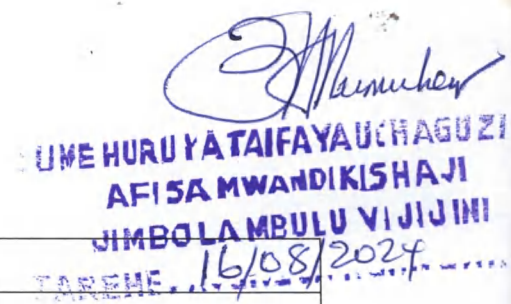 UME HURU YA TAIFA YA UCHAGUZI
AFISA MWANDIKISHAJI
JIMBO LA MBULU VIJIJINI
TAREHE 16/08/2024